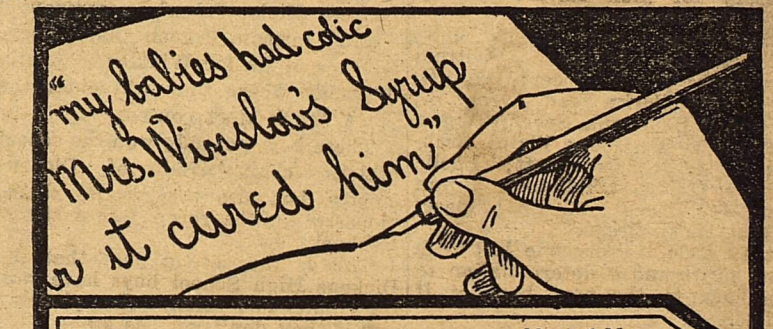 "my babies had colic
Mrs. Winslow's Syrup
r it cured him"